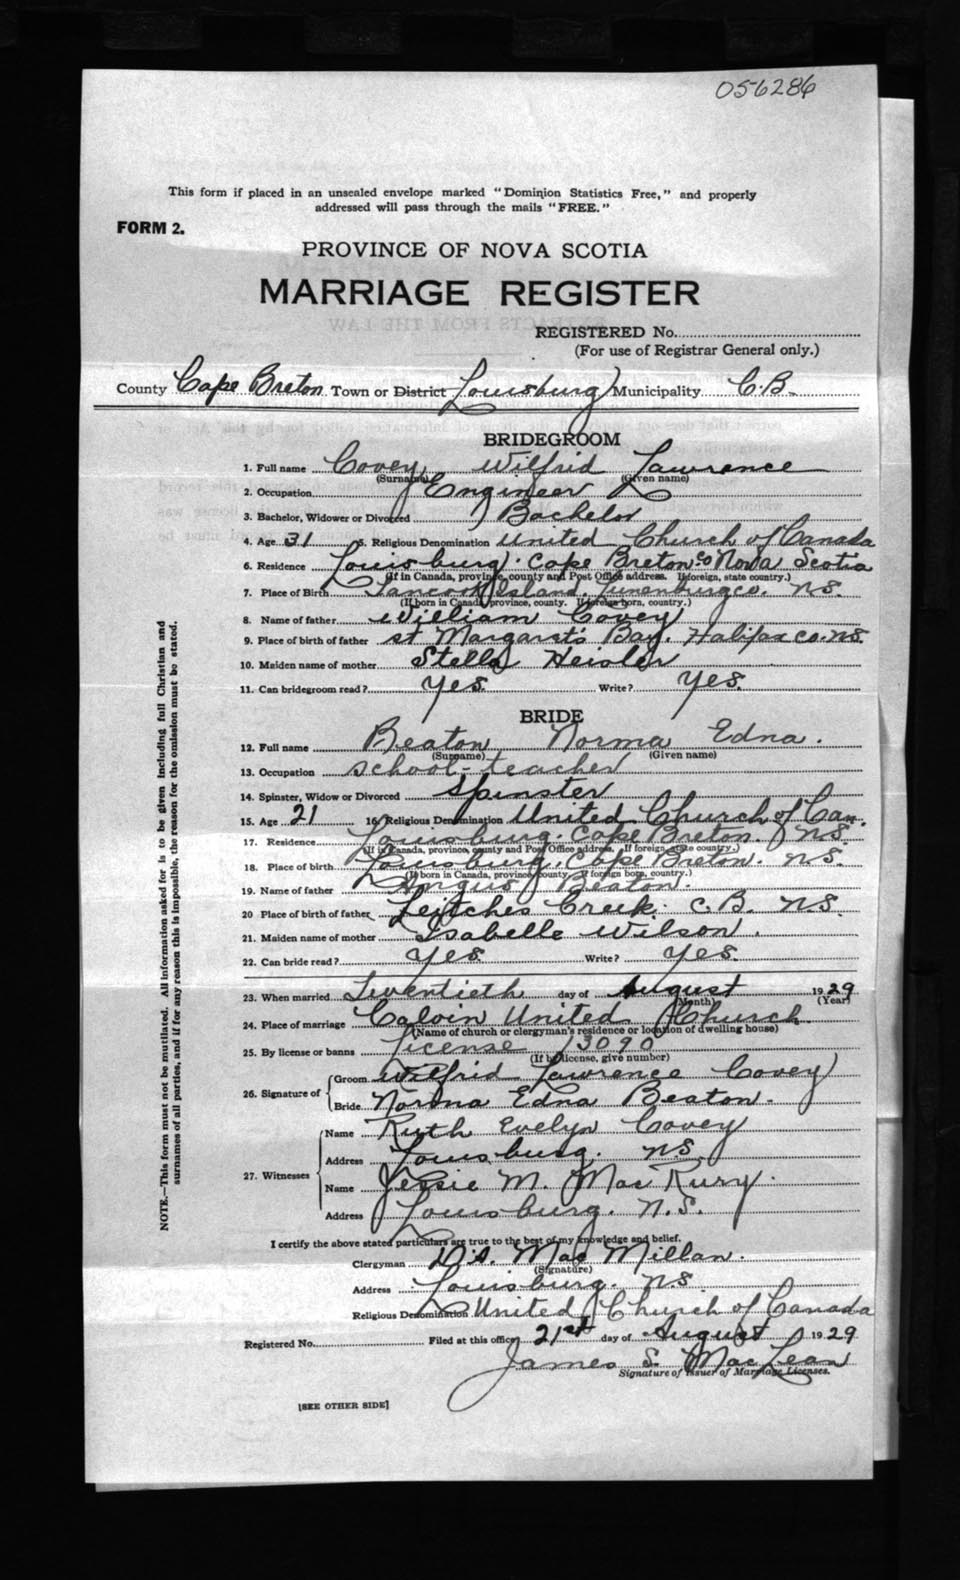 056286
This form if placed in an unsealed envelope marked "Dominion Statistics Free," and properly
addressed will pass through the mails "FREE."
FORM 2.
PROVINCE OF NOVA SCOTIA
MARRIAGE REGISTER
REGISTERED No.
(For use of Registrar General only.)
County Cape Breton Town or District Louisburg Municipality C.B.
BRIDEGROOM
1. Full name Covey, Wilfrid Lawrence
(Surname) (Given name)
2. Occupation Engineer
3. Bachelor, Widower or Divorced Bachelor
4. Age 31 5. Religious Denomination United Church of Canada
6. Residence Louisburg. Cape Breton Co Nova Scotia
(If in Canada, province, county and Post Office address. If foreign, state country.)
7. Place of Birth Tancook Island. Lunenburg co. N.S.
(If born in Canada, province, county. If foreign born, country.)
8. Name of father William Covey
9. Place of birth of father St Margaret's Bay. Halifax co. N.S.
10. Maiden name of mother Stella Heisler
11. Can bridegroom read? Yes. Write? Yes.
BRIDE
12. Full name Beaton Norma Edna.
(Surname) (Given name)
13. Occupation School-teacher
14. Spinster, Widow or Divorced Spinster
15. Age 21 16. Religious Denomination United Church of Can.
17. Residence Louisburg. Cape Breton. N.S
(If in Canada, province, county and Post Office address. If foreign, state country.)
18. Place of birth Louisburg, Cape Breton. N.S.
(If born in Canada, province, county. If foreign born, country.)
19. Name of father Angus Beaton.
20 Place of birth of father Leitches Creek. C.B. N.S.
21. Maiden name of mother Isabelle Wilson.
22. Can bride read? Yes. Write? Yes.
23. When married Twentieth day of August 1929
(Month) (Year)
24. Place of marriage Calvin United Church
(Name of church or clergyman's residence or location of dwelling house)
25. By license or banns License 13090
(If by license, give number)
26. Signature of Groom Wilfrid Lawrence Covey
Bride Norma Edna Beaton.
27. Witnesses Name Ruth Evelyn Covey
Address Louisburg. N.S
Name Jessie M. MacRury.
Address Louisburg. N.S.
I certify the above stated particulars are true to the best of my knowledge and belief.
Clergyman D.A. MacMillan.
(Signature)
Address Louisburg. N.S
Religious Denomination United Church of Canada
Registered No. Filed at this office 21st day of August 1929
James S. MacLean
Signature of Issuer of Marriage Licenses.
[SEE OTHER SIDE]
NOTE.—This form must not be mutilated. All information asked for is to be given including full Christian and
surnames of all parties, and if for any reason this is impossible, the reason for the omission must be stated.